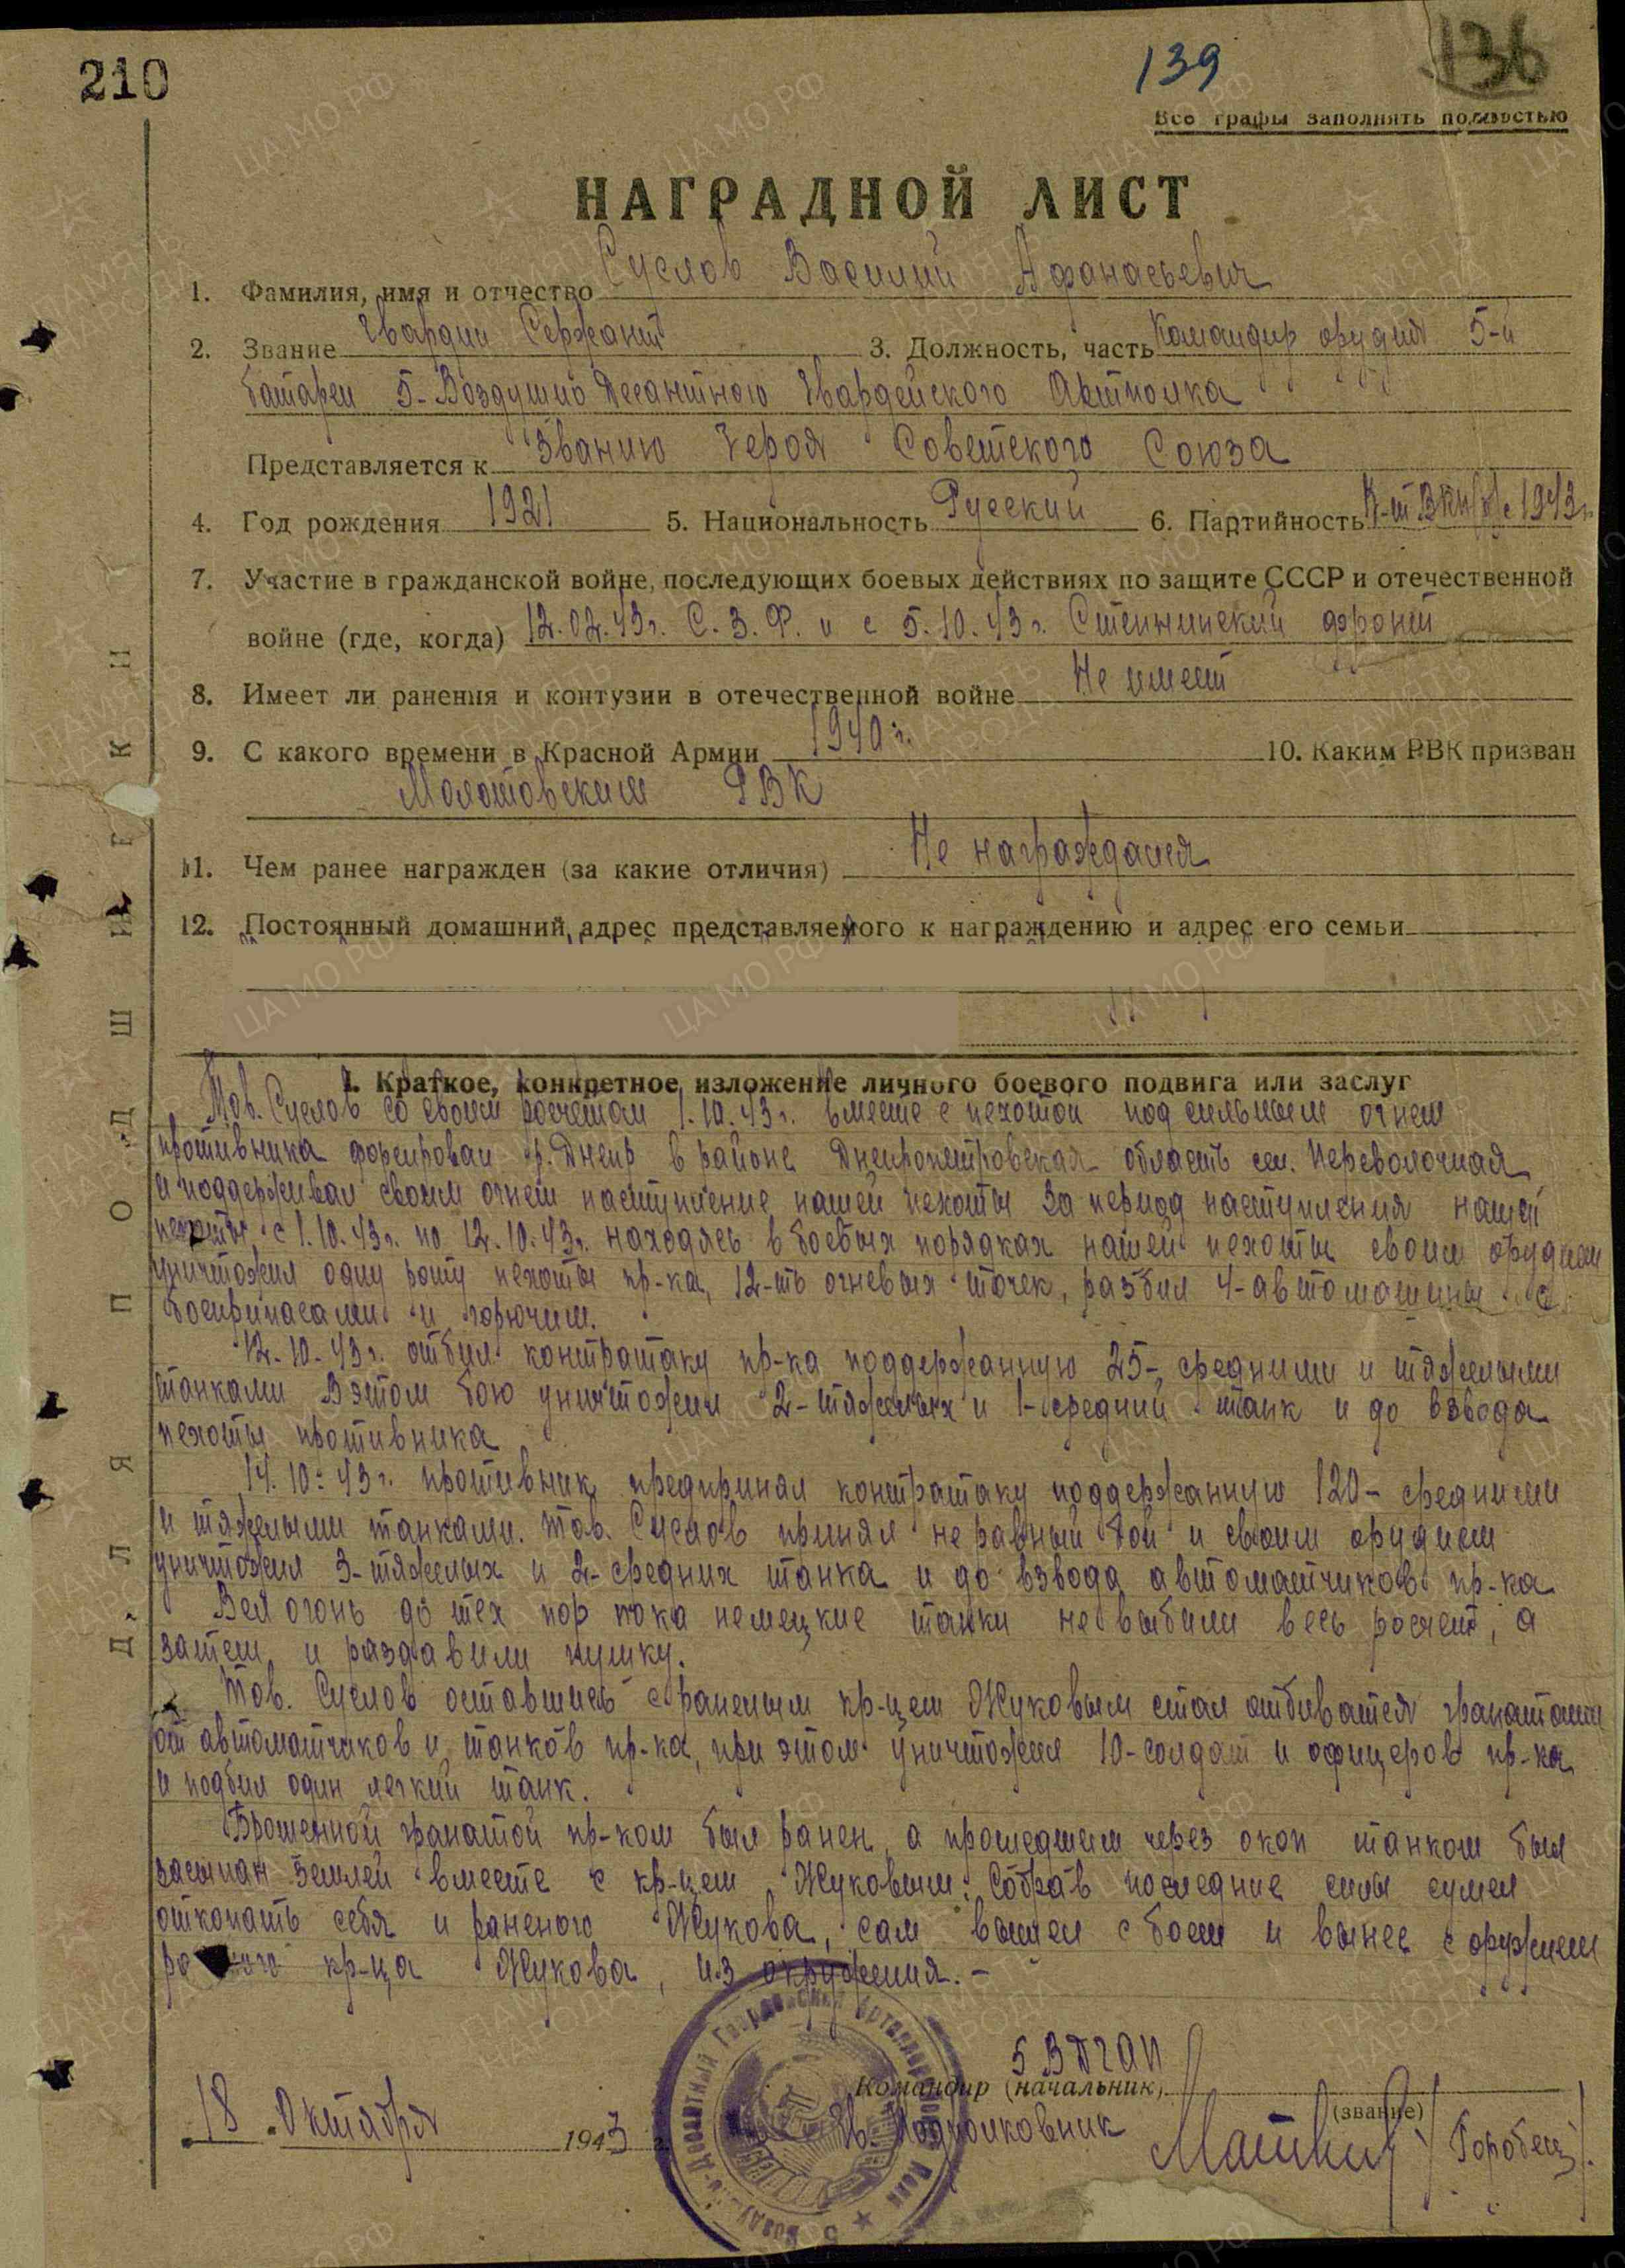 210
139
136
Все графы заполнять полностью
НАГРАДНОЙ ЛИСТ
1. Фамилия, имя и отчество Суслов Василий Афанасьевич
2. Звание Гвардии Сержант 3. Должность, часть Командир орудия 5-й
батареи 5-Воздушно Десантного Гвардейского Артполка
Представляется к Званию Героя Советского Союза
4. Год рождения 1921 5. Национальность Русский 6. Партийность К-т ВКП(б) с 1943г.
7. Участие в гражданской войне, последующих боевых действиях по защите СССР и отечественной
войне (где, когда) 12.02.43г. С.З.Ф. и с 5.10.43г. Степной фронт
8. Имеет ли ранения и контузии в отечественной войне Не имеет
9. С какого времени в Красной Армии 1940г. 10. Каким РВК призван
Молотовским РВК
11. Чем ранее награжден (за какие отличия) Не награждался
12. Постоянный домашний адрес представляемого к награждению и адрес его семьи
I. Краткое, конкретное изложение личного боевого подвига или заслуг
Тов. Суслов со своим расчетом 1.10.43г. вместе с пехотой под сильным огнем
противника форсировал р. Днепр в районе Днепропетровская область сел. Переволочная
и поддерживал своим огнем наступление нашей пехоты За период наступления нашей
пехоты с 1.10.43г. по 12.10.43г. находясь в боевых порядках нашей пехоты своим орудием
уничтожил одну роту пехоты пр-ка, 12-ть огневых точек, разбил 4-автомашины с
боеприпасами и горючим.
12.10.43г. отбил контратаку пр-ка поддержанную 25-средними и тяжелыми
танками В этом бою уничтожил 2-тяжелых и 1-средний танк и до взвода
пехоты противника
14.10.43г. противник предпринял контратаку поддержанную 120-средними
и тяжелыми танками. Тов. Суслов принял неравный бой и своим орудием
уничтожил 3-тяжелых и 2-средних танка и до взвода автоматчиков пр-ка
Вел огонь до тех пор пока немецкие танки не выбили весь расчет, а
затем и раздавили пушку.
Тов. Суслов оставшись с раненым кр-цем Жуковым стал отбиватся гранатами
от автоматчиков и танков пр-ка, при этом уничтожил 10-солдат и офицеров пр-ка
и подбил один легкий танк.
Брошенной гранатой пр-ком был ранен, а прошедшим через окоп танком был
засыпан землей вместе с кр-цем Жуковым. Собрав последние силы сумел
откопать себя и раненого Жукова, сам вышел с боем и вынес с оружием
кр-ца Жукова, из окружения. -
5 ВДГАП
Командир (начальник)
(звание)
Гв. Подполковник
/Горобец/.
18 Октября 1943 г.
ДЛЯ ПОДШИВКИ